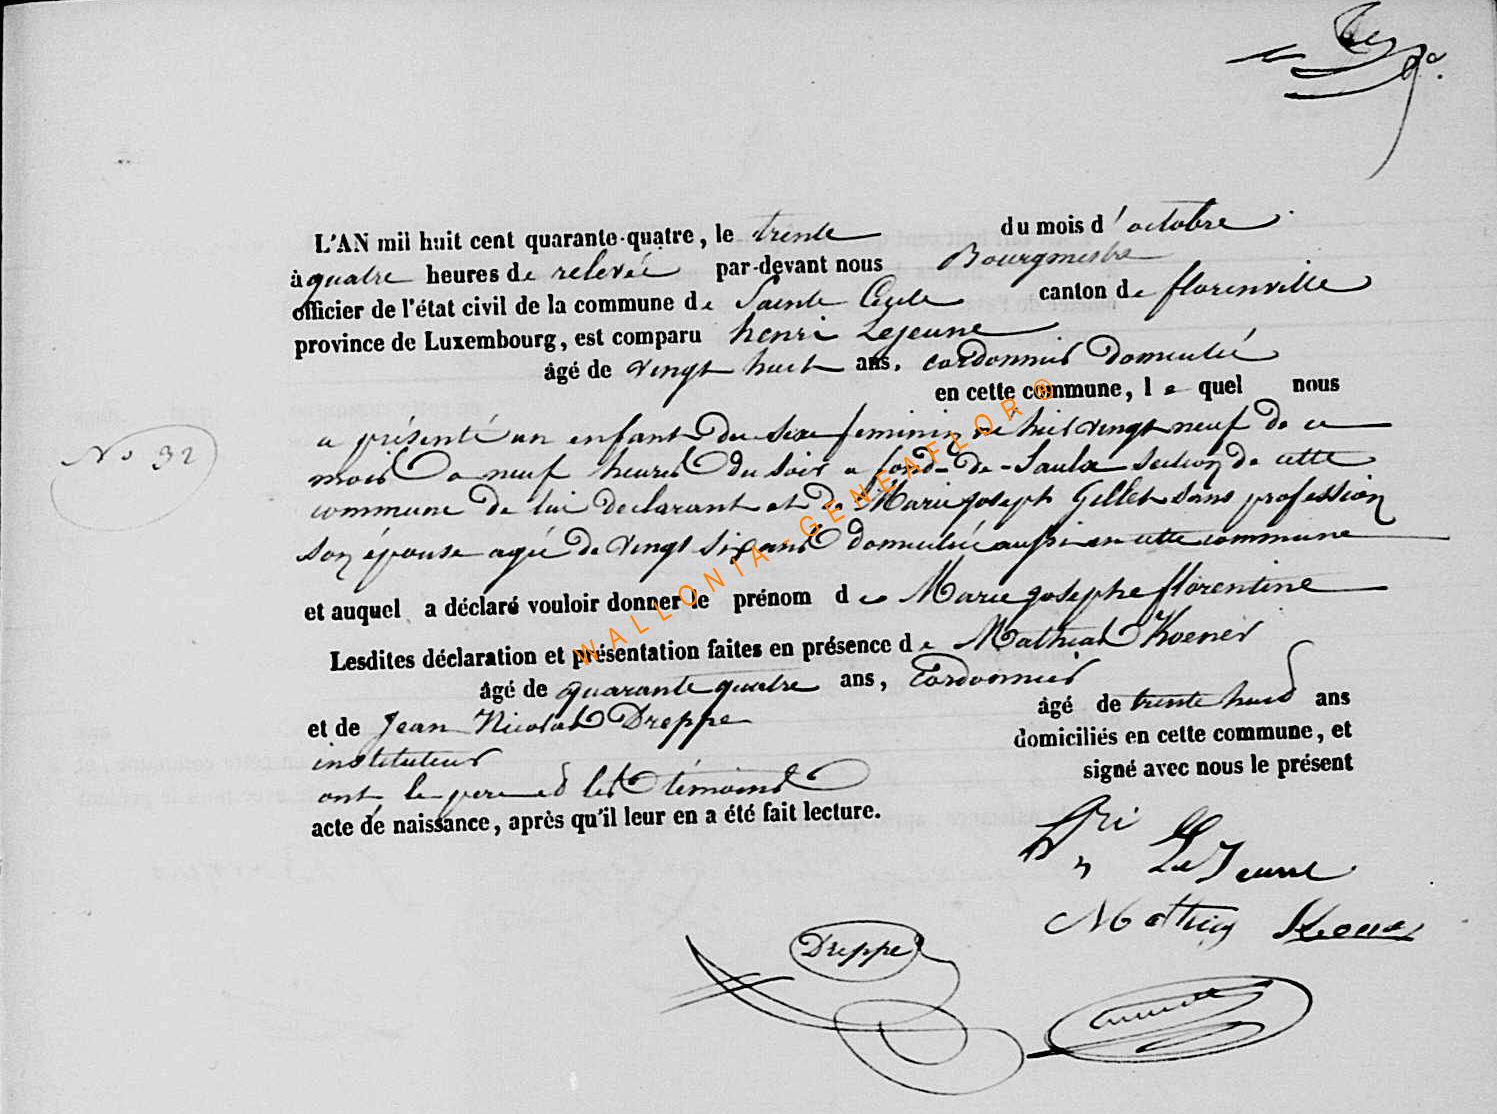 L'AN mil huit cent quarante-quatre, le trente du mois d'octobre
à quatre heures de relevée par-devant nous Bourgmestre
officier de l'état civil de la commune de Sainte Cecile canton de florenville
province de Luxembourg, est comparu henri Lejeune
âgé de vingt huit ans, cordonnier domicilié
en cette commune, lequel nous
No 32
a présenté un enfant du sexe feminin né hier vingt neuf de ce
mois a neuf heures du soir a fond-de-Saulx section de cette
commune de lui declarant et de Marie joseph Gillet sans profession
son épouse agée de vingt six ans domiciliée aussi en cette commune
et auquel a déclaré vouloir donner le prénom de Marie josephe florentine
Lesdites déclaration et présentation faites en présence de Mathias Koener
âgé de quarante quatre ans, Cordonnier
et de Jean Nicolas Dreppe âgé de trente huit ans
instituteur domiciliés en cette commune, et
ont le pere et les témoins signé avec nous le présent
acte de naissance, après qu'il leur en a été fait lecture.
LeJeune
Mathias
Dreppe
WALLONIA-GENEAFLOR®